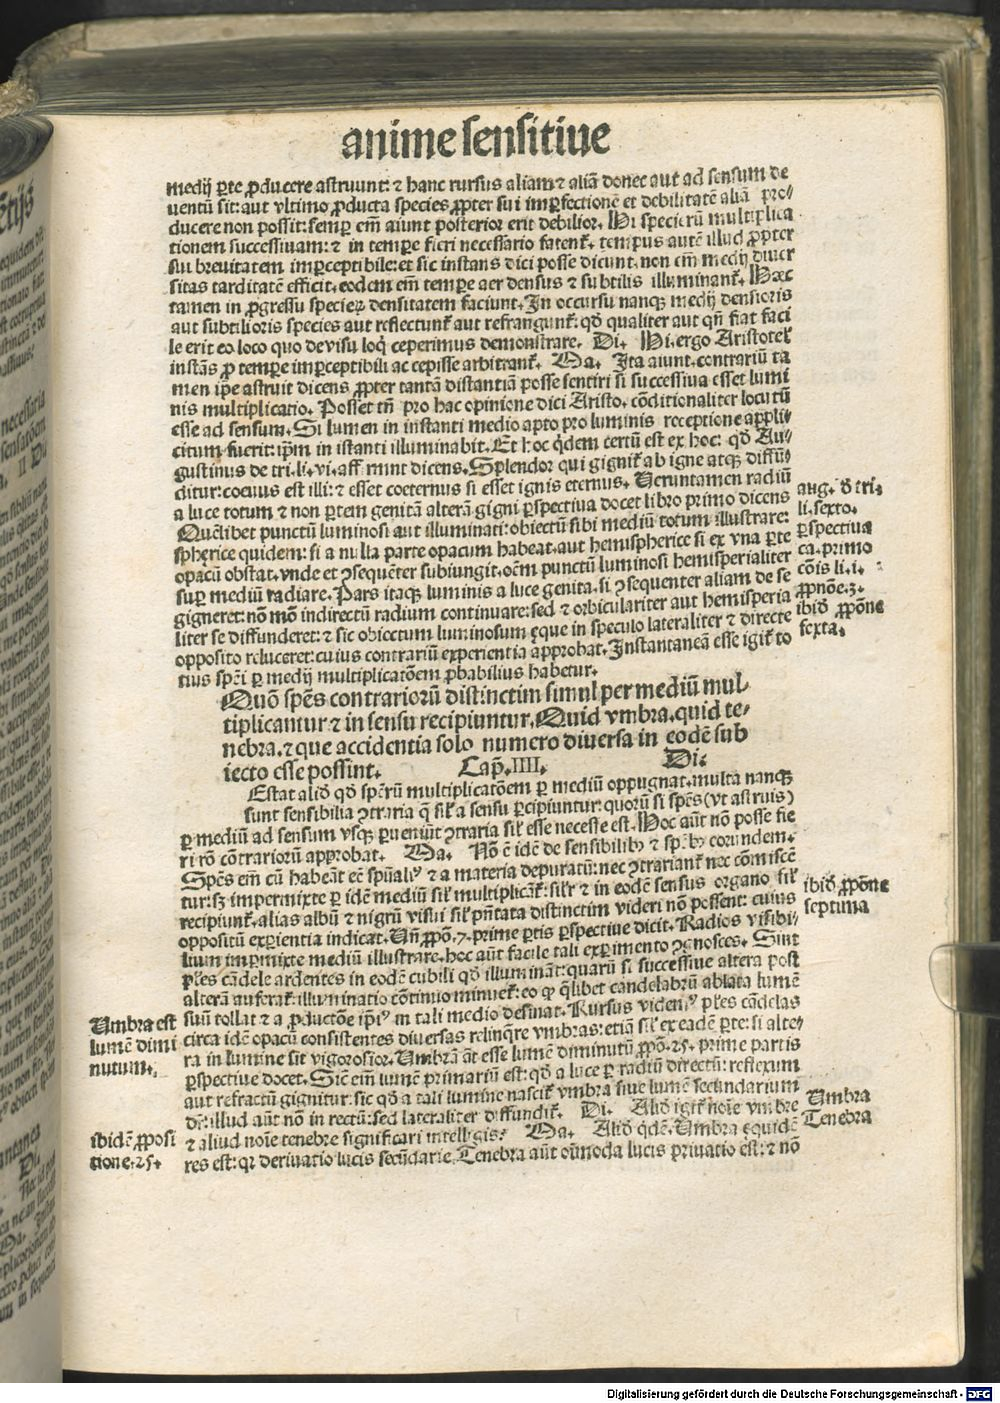 anime sensitiue
medij ꝑte ꝓducere astruunt: ⁊ hanc rursus aliam ⁊ aliã donec aut ad sensum de
uentũ sit: aut vltimo ꝓducta species ꝓpter sui imꝑfectionẽ et debilitatẽ aliã pro⸗
ducere non possit: semꝑ em̃ aiunt posterior erit debilior. Hi specierũ multiplica
tionem successiuam: ⁊ in tempe fieri necessario fatenť. tempus autẽ illud ꝓpter
sui breuitatem imꝑceptibile: et sic instans dici posse dicunt. non em̃ medij diuer
sitas tarditatẽ efficit. eodem em̃ tempe aer densus ⁊ subtilis illuminanť. Hæc
tamen in ꝓgressu specieꝝ densitatem faciunt. In occursu nanqꝫ medij densioris
aut subtilioris species aut reflectunť aut refrangunť: qđ qualiter aut qñ fiat faci
le erit eo loco quo de visu loqͥ ceperimus demonstrare. Di. Hi. ergo Aristoteľ
instãs ꝓ tempe imꝑceptibili accepisse arbitranť. Ma. Ita aiunt. contrariũ ta
men ip̃e astruit dicens ꝓpter tantã distantiã posse sentiri si successiua esset lumi
nis multiplicatio. Posset tñ pro hac opinione dici Aristo. cõditionaliter locutũ
esse ad sensum. Si lumen in instanti medio apto pro luminis receptione appli⸗
citum fuerit: ip̃m in istanti illuminabit. Et hoc qͥdem certũ est ex hoc: qđ Au⸗
gustinus de tri. li. vi. affirmat dicens. Splendor qui gigniť ab igne atqꝫ diffũ⸗
ditur: coeuus est illi: ⁊ esset coeternus si esset ignis eternus. Veruntamen radiũ
a luce totum ⁊ non partem genitã alterã gigni ꝑspectiua docet libro primo dicens
Quẽlibet punctũ luminosi aut illuminati: obiectũ sibi mediũ totum illustrare:
spherice quidem: si a nulla parte opacum habeat. aut hemispherice si ex vna ꝑte
opacũ obstat. vnde et ꝯsequẽter subiungit. oẽm punctũ luminosi hemisperialiter
suꝑ mediũ radiare. Pars itaqꝫ luminis a luce genita. si ꝯsequenter aliam de se
gigneret: non mõ indirectũ radium continuare: sed ⁊ orbiculariter aut hemisperia
liter se diffunderet: ⁊ sic obiectum luminosum eque in speculo lateraliter ⁊ directe
opposito reluceret: cuius contrariũ experientia approbat. Instantaneã esse igiť to
tius spẽi ꝑ medij multiplicatõem ꝓbabilius habetur.
aug. đ tri.
li. sexto.
ꝑspectiua
ca. primo
cõis li. i.
ꝓpõne. 3.
ibiđ ꝓpõne
sexta.
Quõ spẽs contrariorũ distinctim simul per mediũ mul⸗
tiplicantur ⁊ in sensu recipiuntur. Quid vmbra. quid te⸗
nebra. ⁊ que accidentia solo numero diuersa in eodẽ sub
iecto esse possint. Cap̃. IIII. Di.
Estat aliđ qđ spẽrũ multiplicatõem ꝑ mediũ oppugnat. multa nanqꝫ
sunt sensibilia ꝯtraria q̃ siľ a sensu ꝑcipiuntur: quorũ si spẽs (vt astruis)
ꝑ mediũ ad sensum vsqꝫ ꝑueniũt ꝯtraria siľ esse necesse est. Hoc aũt nõ posse fie
ri rõ cõtrariorũ approbat. Ma. Nõ ẽ idẽ de sensibilibꝰ ⁊ spẽbꝰ eorundem.
Spẽs em̃ cũ habeãt eẽ spũalꝰ ⁊ a materia depuratũ: nec ꝯtrarianť nec cõmiscẽ
tur: sꝫ impermixte ꝑ idẽ mediũ siľ multiplicãť: siľr ⁊ in eodẽ sensus organo siľ
recipiunť. alias albũ ⁊ nigrũ visui siľ p̃ntata distinctim videri nõ possent: cuius
oppositũ exꝑientia indicat. Uñ ꝓpõ. 7. prime ꝑtis ꝑspectiue dicit. Radios visibi⸗
lium imꝑmixte mediũ illustrare. hoc aũt facile tali exꝑimento ꝯgnosces. Sint
ples cãdele ardentes in eodẽ cubili qđ illuminãt: quarũ si successiue altera post
alterã auferať: illuminatio cõtinuo minueť: eo ꝙ qͥlibet candelabrũ ablata lumẽ
suũ tollat ⁊ a ꝓductõe ip̃iꝰ in tali medio desinat. Rursus videmꝰ ples cãdelas
circa idẽ opacũ consistentes diuersas relinqͥre vmbras: etiã siľ ex eadẽ ꝑte: si alte⸗
ra in lumine sit vigorosior. Umbrã aũt esse lumẽ diminutũ ꝓpõ. 25. prime partis
ꝑspectiue docet. Sic em̃ lumẽ primariũ est: qđ a luce ꝑ radiũ directũ: reflexum
aut refractũ gignitur: sic qđ a tali lumine nasciť vmbra siue lumẽ secundarium
dr̃: illud aũt nõ in rectũ: sed lateraliter diffundiť. Di. Aliđ igiť noĩe vmbre
⁊ aliud noĩe tenebre significari intelligis? Ma. Aliđ qͥdẽ. Umbra equidẽ
res est: qꝛ deriuatio lucis secũdarie. Tenebra aũt oĩmoda lucis priuatio est: ⁊ nõ
ibiđ ꝓpõne
septima
Umbra est
lumẽ dimi
nutum.
ibidẽ ꝓposi
tione. 25.
Umbra
Tenebra
Digitalisierung gefördert durch die Deutsche Forschungsgemeinschaft - DFG